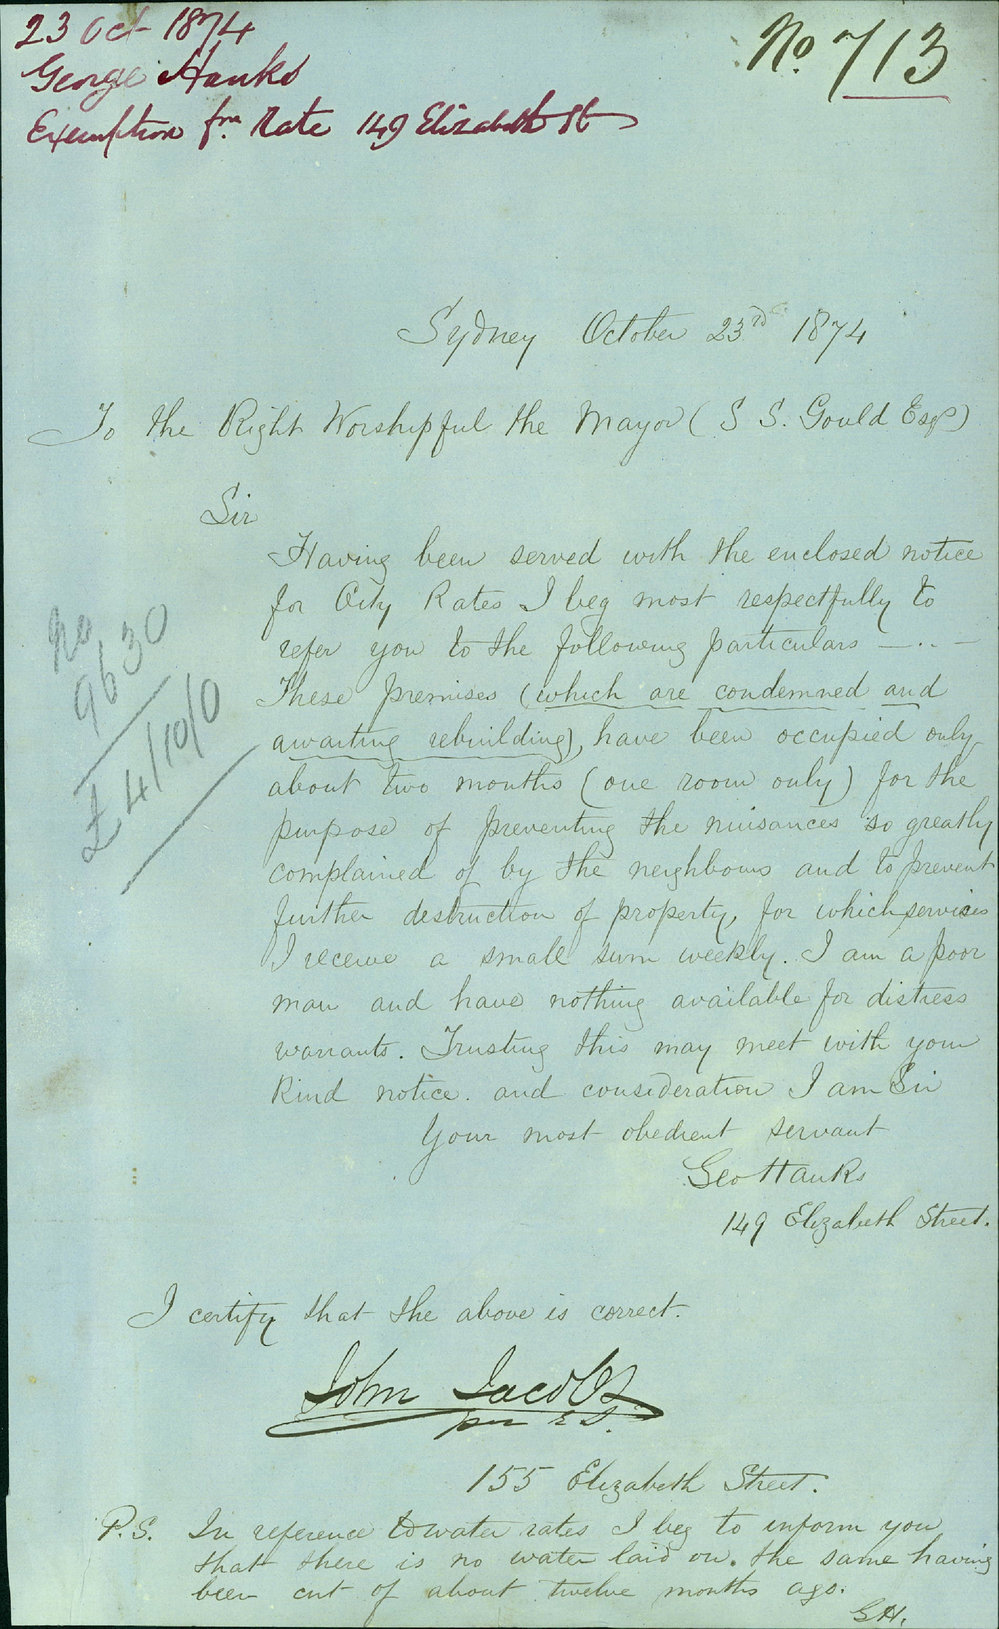 23 Oct 1874
No. 713
George Hanks
Exemption fm. Rate 149 Elizabeth St
Sydney October 23rd 1874
To the Right Worshipful the Mayor (S S. Gould Esqr)
Sir
Having been served with the enclosed notice
for City Rates I beg most respectfully to
refer you to the following particulars —..—
These premises (which are condemned and
awaiting rebuilding), have been occupied only
about two months (one room only) for the
purpose of preventing the nuisances so greatly
complained of by the neighbours and to prevent
further destruction of property, for which services
I receive a small sum weekly. I am a poor
man and have nothing available for distress
warrants. Trusting this may meet with your
kind notice. and consideration I am Sir
Your most obedient servant
Geo Hanks
149 Elizabeth Street.
No
9630
£4/10/0
I certify that the above is correct.
John Jacobs
per E S.
155 Elizabeth Street.
P.S. In reference to water rates I beg to inform you
that there is no water laid on. the same having
been cut of about twelve months ago.
G H.